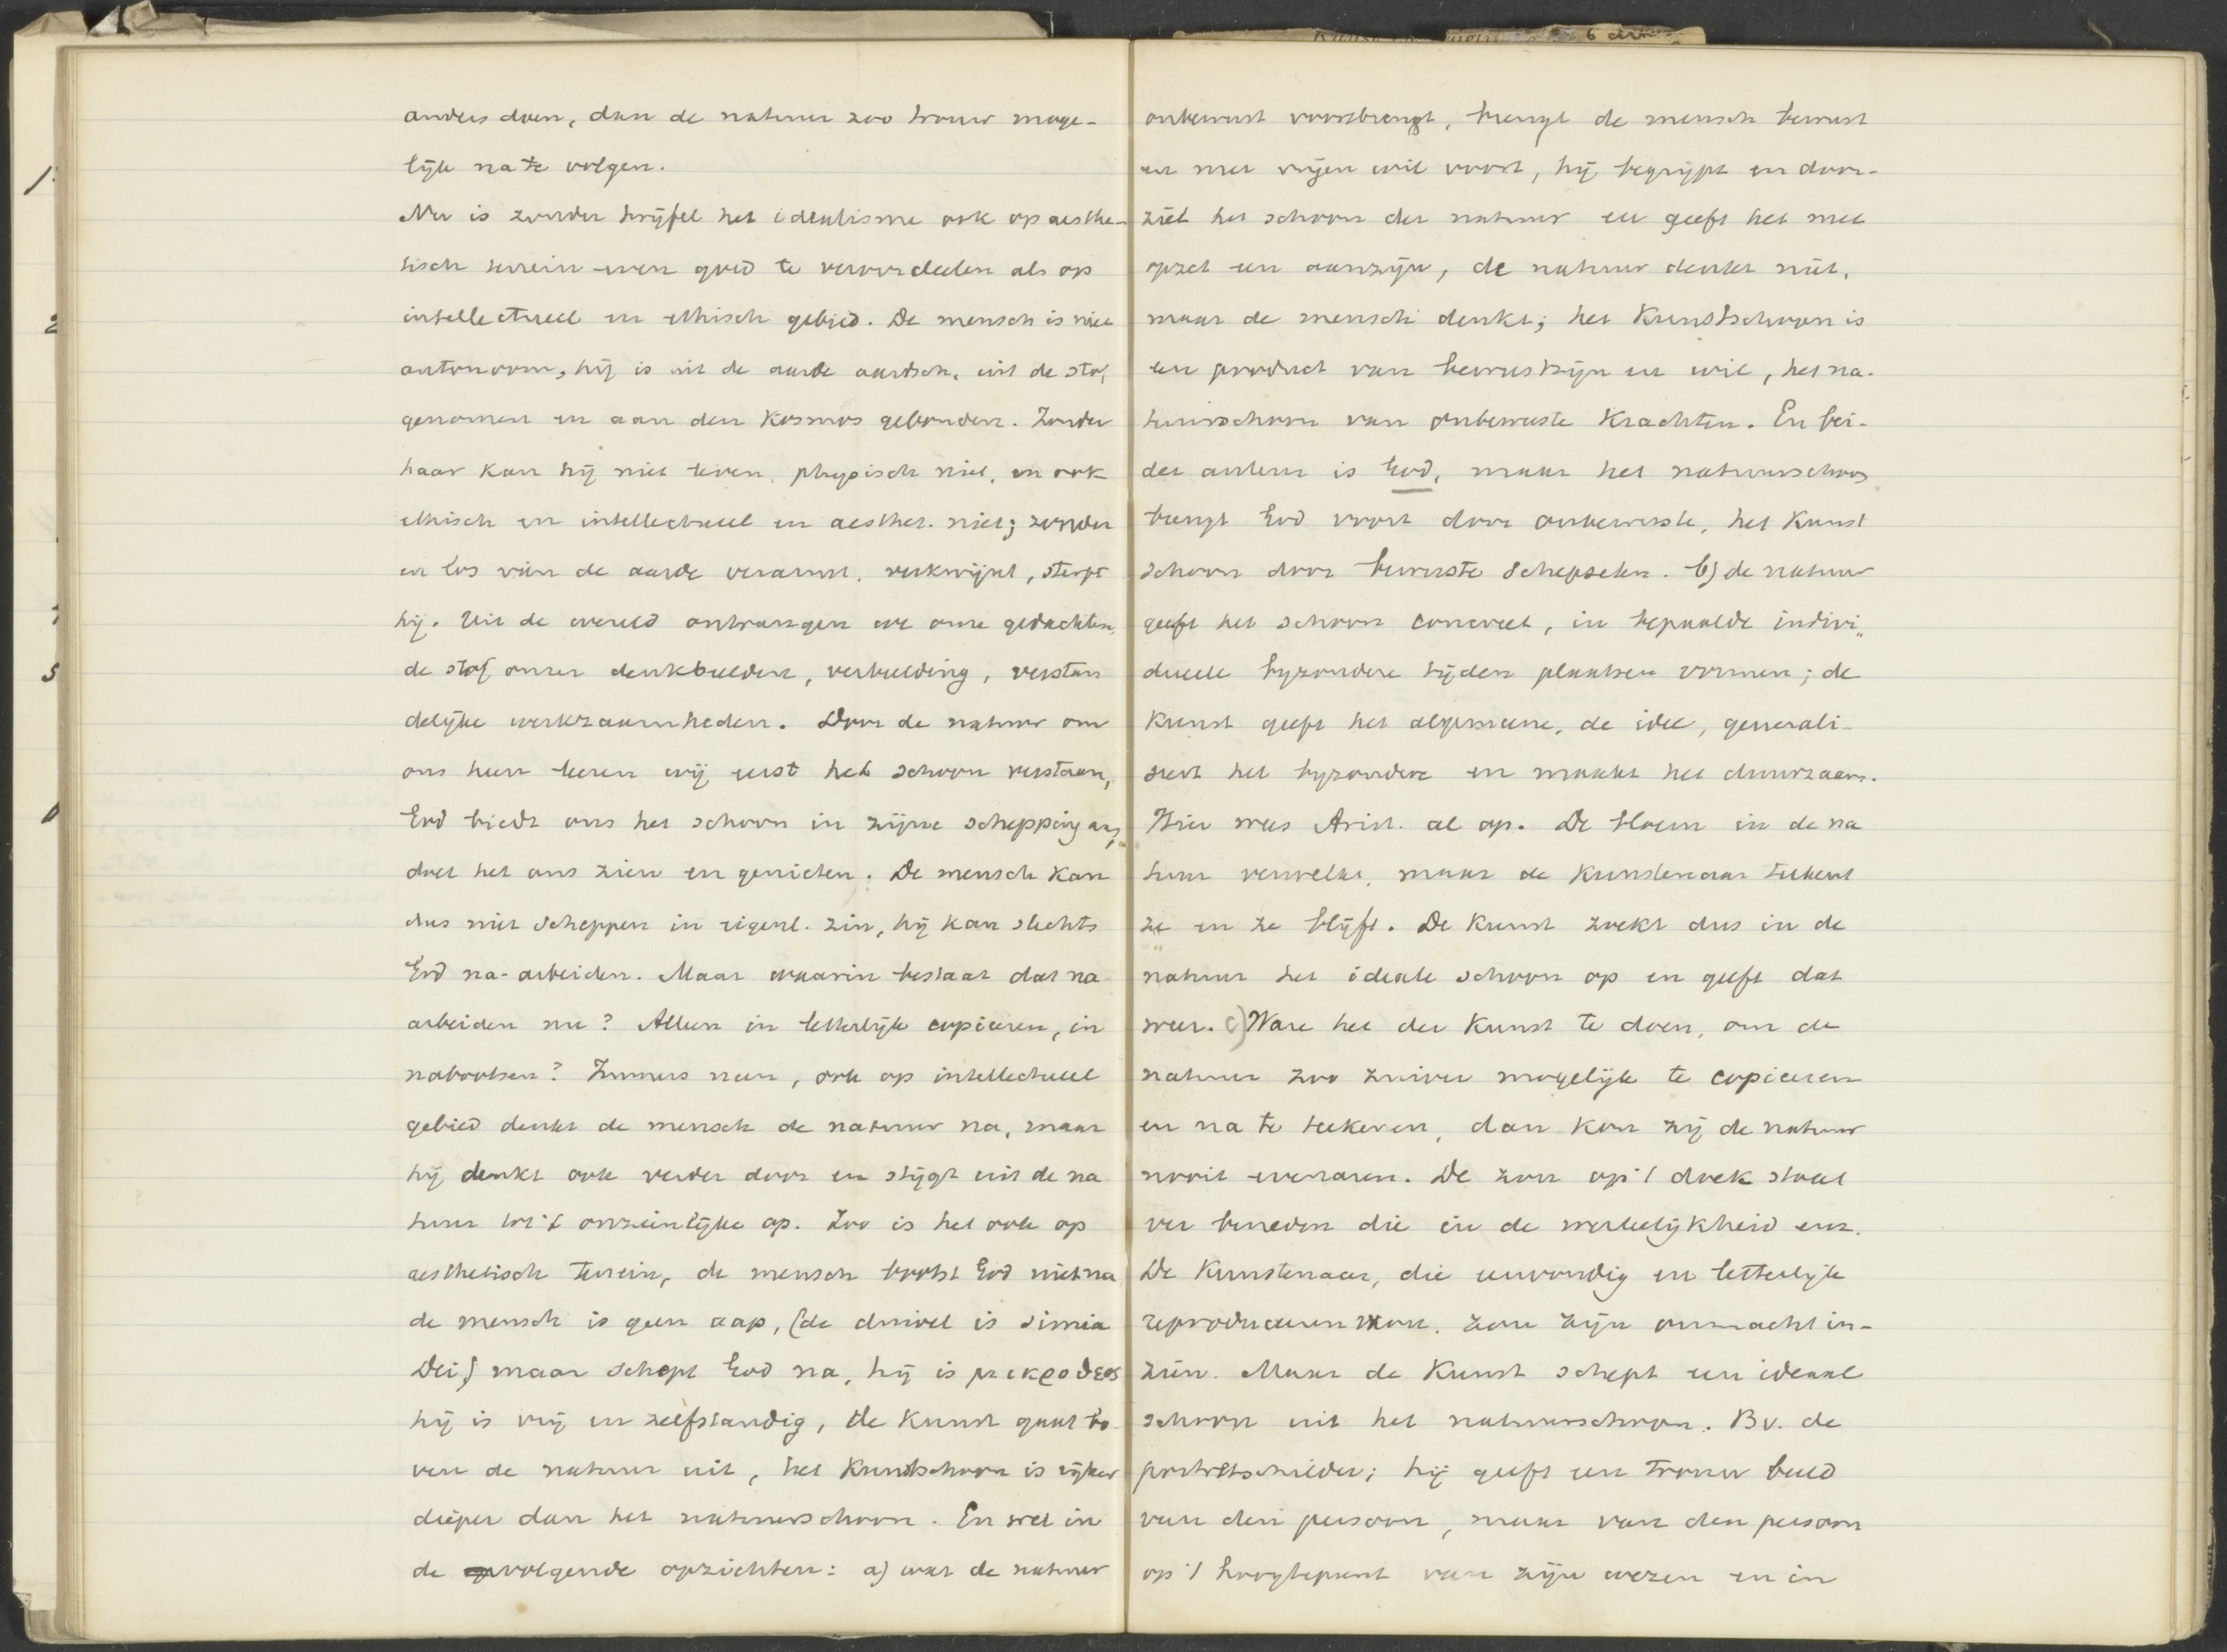 anders doen, dan de natuur zoo trouw moge-
lijk na te volgen.
Nu is zonder twijfel het idealisme ook op aesthe-
tisch terrein even goed te veroordeelen als op
intellectueel en ethisch gebied. De mensch is niet
autonoom, hij is uit de aarde aardsch, uit de stof
genomen en aan den Kosmos gebonden. Zonder
haar kan hij niet leven, physisch niet, en ook
ethisch en intellectueel en aesthet. niet; zonder
en los van de aarde verarmt, verkwijnt, sterft
hij. Uit de wereld ontvangen we onze gedachten,
de stof onzer denkbeelden, verbeelding, verstan
delijke werkzaamheden. Door de natuur om
ons heen leeren wij eerst het schoon verstaan,
God biedt ons het schoon in zijne schepping aan,
doet het ons zien en genieten. De mensch kan
dus niet scheppen in eigenl. zin, hij kan slechts
God na-arbeiden. Maar waarin bestaat dat na
arbeiden nu? Alleen in letterlijk copieeren, in
nabootsen? Immers neen, ook op intellectueel
gebied denkt de mensch de natuur na, maar
hij denkt ook verder door en stijgt uit de na
tuur tot 't onzienlijke op. Zoo is het ook op
aesthetisch terrein, de mensch bootst God niet na
de mensch is geen aap, (de duivel is simia
Dei) maar schept God na, hij is μικροθεος
hij is vrij en zelfstandig, de Kunst gaat bo
ven de natuur uit, het Kunstschoon is rijker
dieper dan het natuurschoon. En wel in
de volgende opzichten: a) wat de natuur
onbewust voortbrengt, brengt de mensch bewust
en met vrijen wil voort, hij begrijpt en door-
ziet het schoon der natuur en geeft het met
opzet een aanzijn, de natuur denkt niet,
maar de mensch denkt; het Kunstschoon is
een product van bewustzijn en wil, het na-
tuurschoon van onbewuste Krachten. En bei-
der auteur is God, maar het natuurschoon
brengt God voort door onbewuste, het Kunst
schoon door bewuste Schepselen. b) de natuur
geeft het schoon concreet, in bepaalde indivi„
dueele byzondere tijden plaatsen vormen; de
Kunst geeft het algemeene, de idee, generali-
seert het byzondere en maakt het duurzaam.
Hier wees Arist. al op. De bloem in de na
tuur verwelkt, maar de Kunstenaar teekent
ze en ze blijft. De Kunst zoekt dus in de
natuur het ideale schoon op en geeft dat
weer. c) Ware het der Kunst te doen, om de
natuur zoo zuiver mogelijk te copieeren
en na te teekenen, dan kon zij de natuur
nooit evenaren. De zon op 't doek staat
ver beneden die in de werkelijkheid enz.
De Kunstenaar, die eenvoudig en letterlijk
reproduceeren wou, zou zijn onmacht in-
zien. Maar de Kunst schept een ideaal
schoon uit het natuurschoon. Bv. de
portretschilder; hij geeft een trouw beeld
van den persoon, maar van den persoon
op 't hoogtepunt van zijn wezen en in